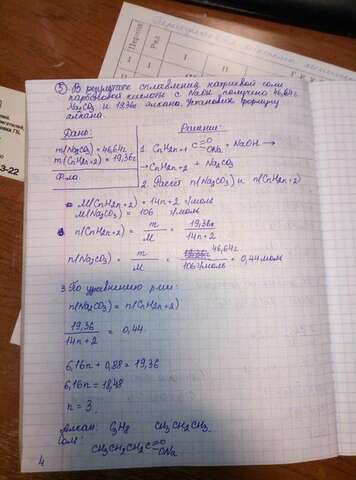 Период
Ряд
I
3-22
⑤ В результате сплавления натриевой соли
карбоновой кислоты с NaOH получено 46,64г
Na₂CO₃ и 19,36г алкана. Установите формулу
алкана.
Дано:
m(Na₂CO₃) = 46,64г
m(CnH2n+2) = 19,36г
Ф-ла
Решение:
1. CnH2n+1 C=O ONa + NaOH →
→ CnH2n+2 + Na₂CO₃
2. Расчёт n(Na₂CO₃) и n(CnH2n+2)
M(CnH2n+2) = 14n+2 г/моль
M(Na₂CO₃) = 106 г/моль
n(CnH2n+2) = m/M = 19,36г/14n+2
n(Na₂CO₃) = m/M = 46,64г/106г/моль = 0,44моль
3. По уравнению р-ии:
n(Na₂CO₃) = n(CnH2n+2)
19,36/14n+2 = 0,44
6,16n + 0,88 = 19,36
6,16n = 18,48
n = 3
Алкан: C₃H₈ CH₃CH₂CH₃
Соль:
CH₃CH₂CH₂C=O ONa
4